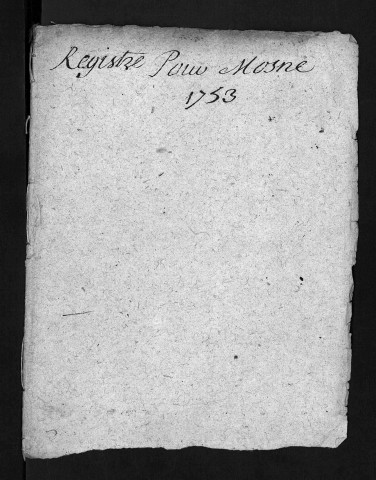 Registre Pour Mosne
1753